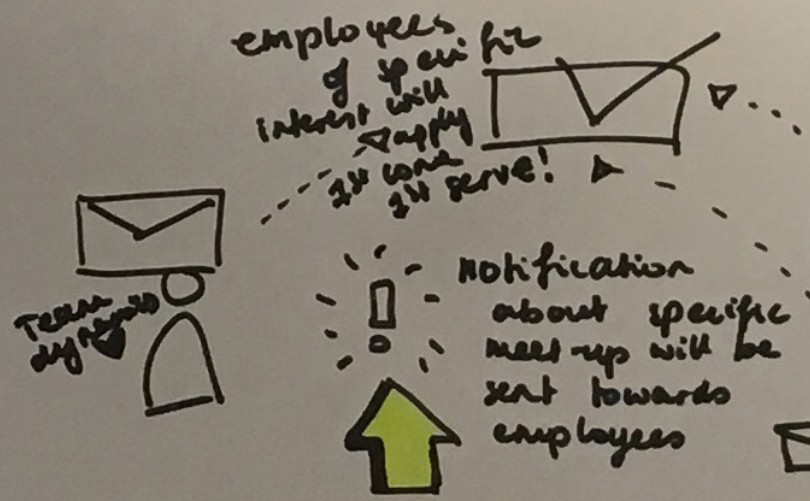 employees
of specific
interest will
apply
1st come
1st serve!
Team
dynamics
notification
about specific
meet-up will be
sent towards
employees